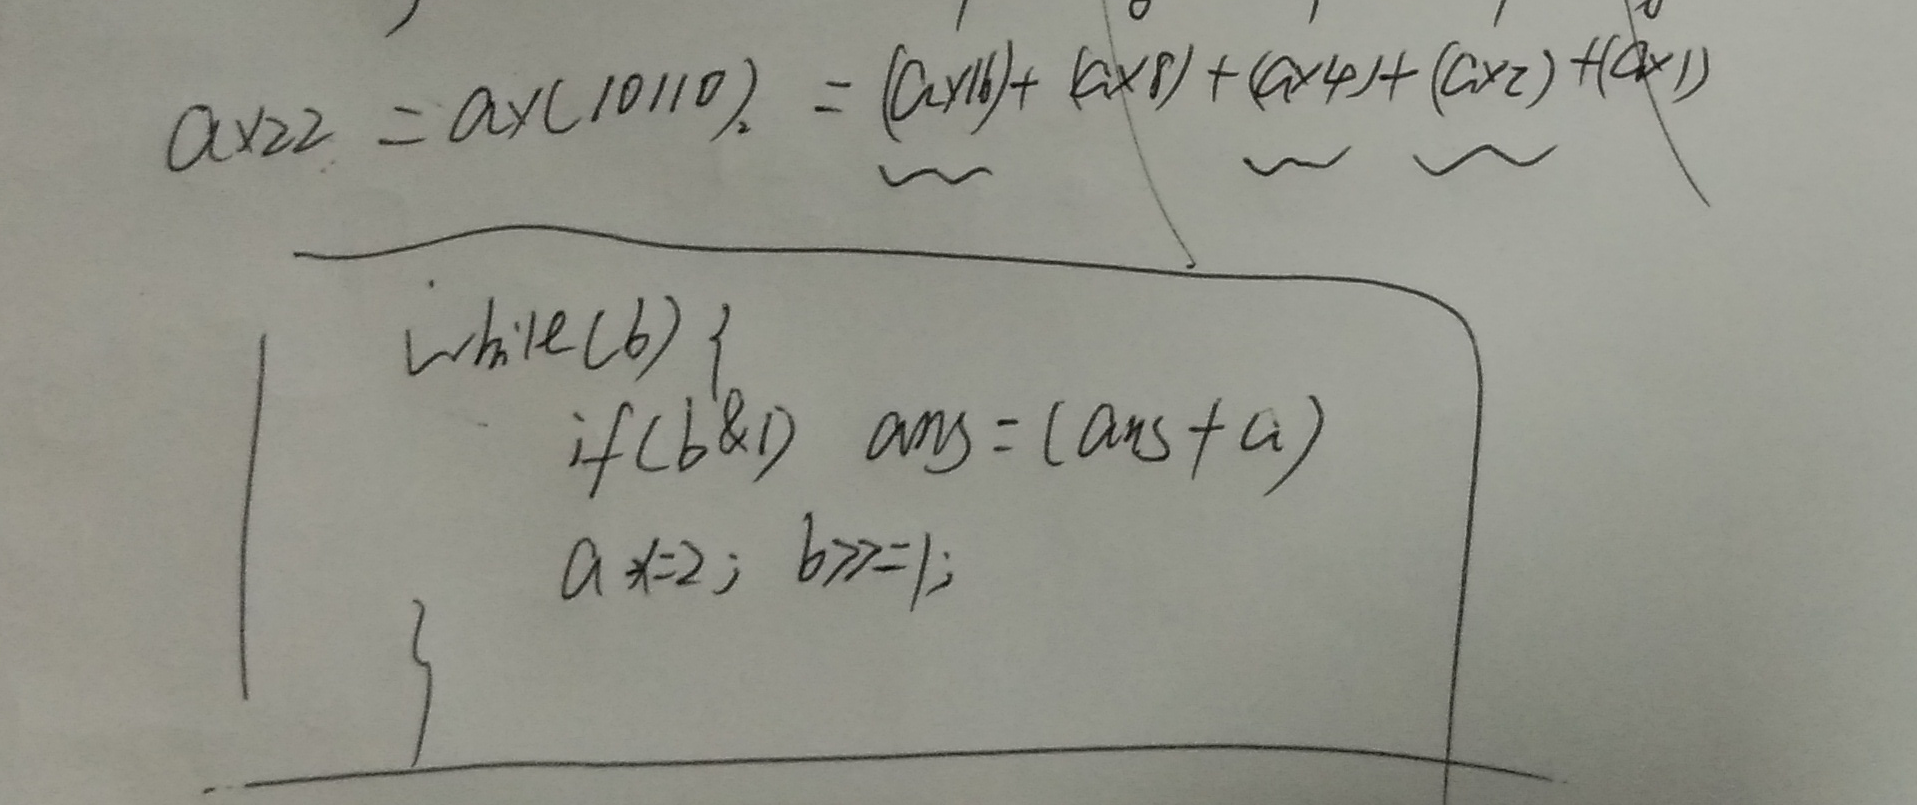 a×22 = a×(10110)₂ = (a×16)+ (a×8) + (a×4)+ (a×2) +(a×1)
while(b) {
if(b&1) ans=(ans+a)
a *=2; b>>=1;
}